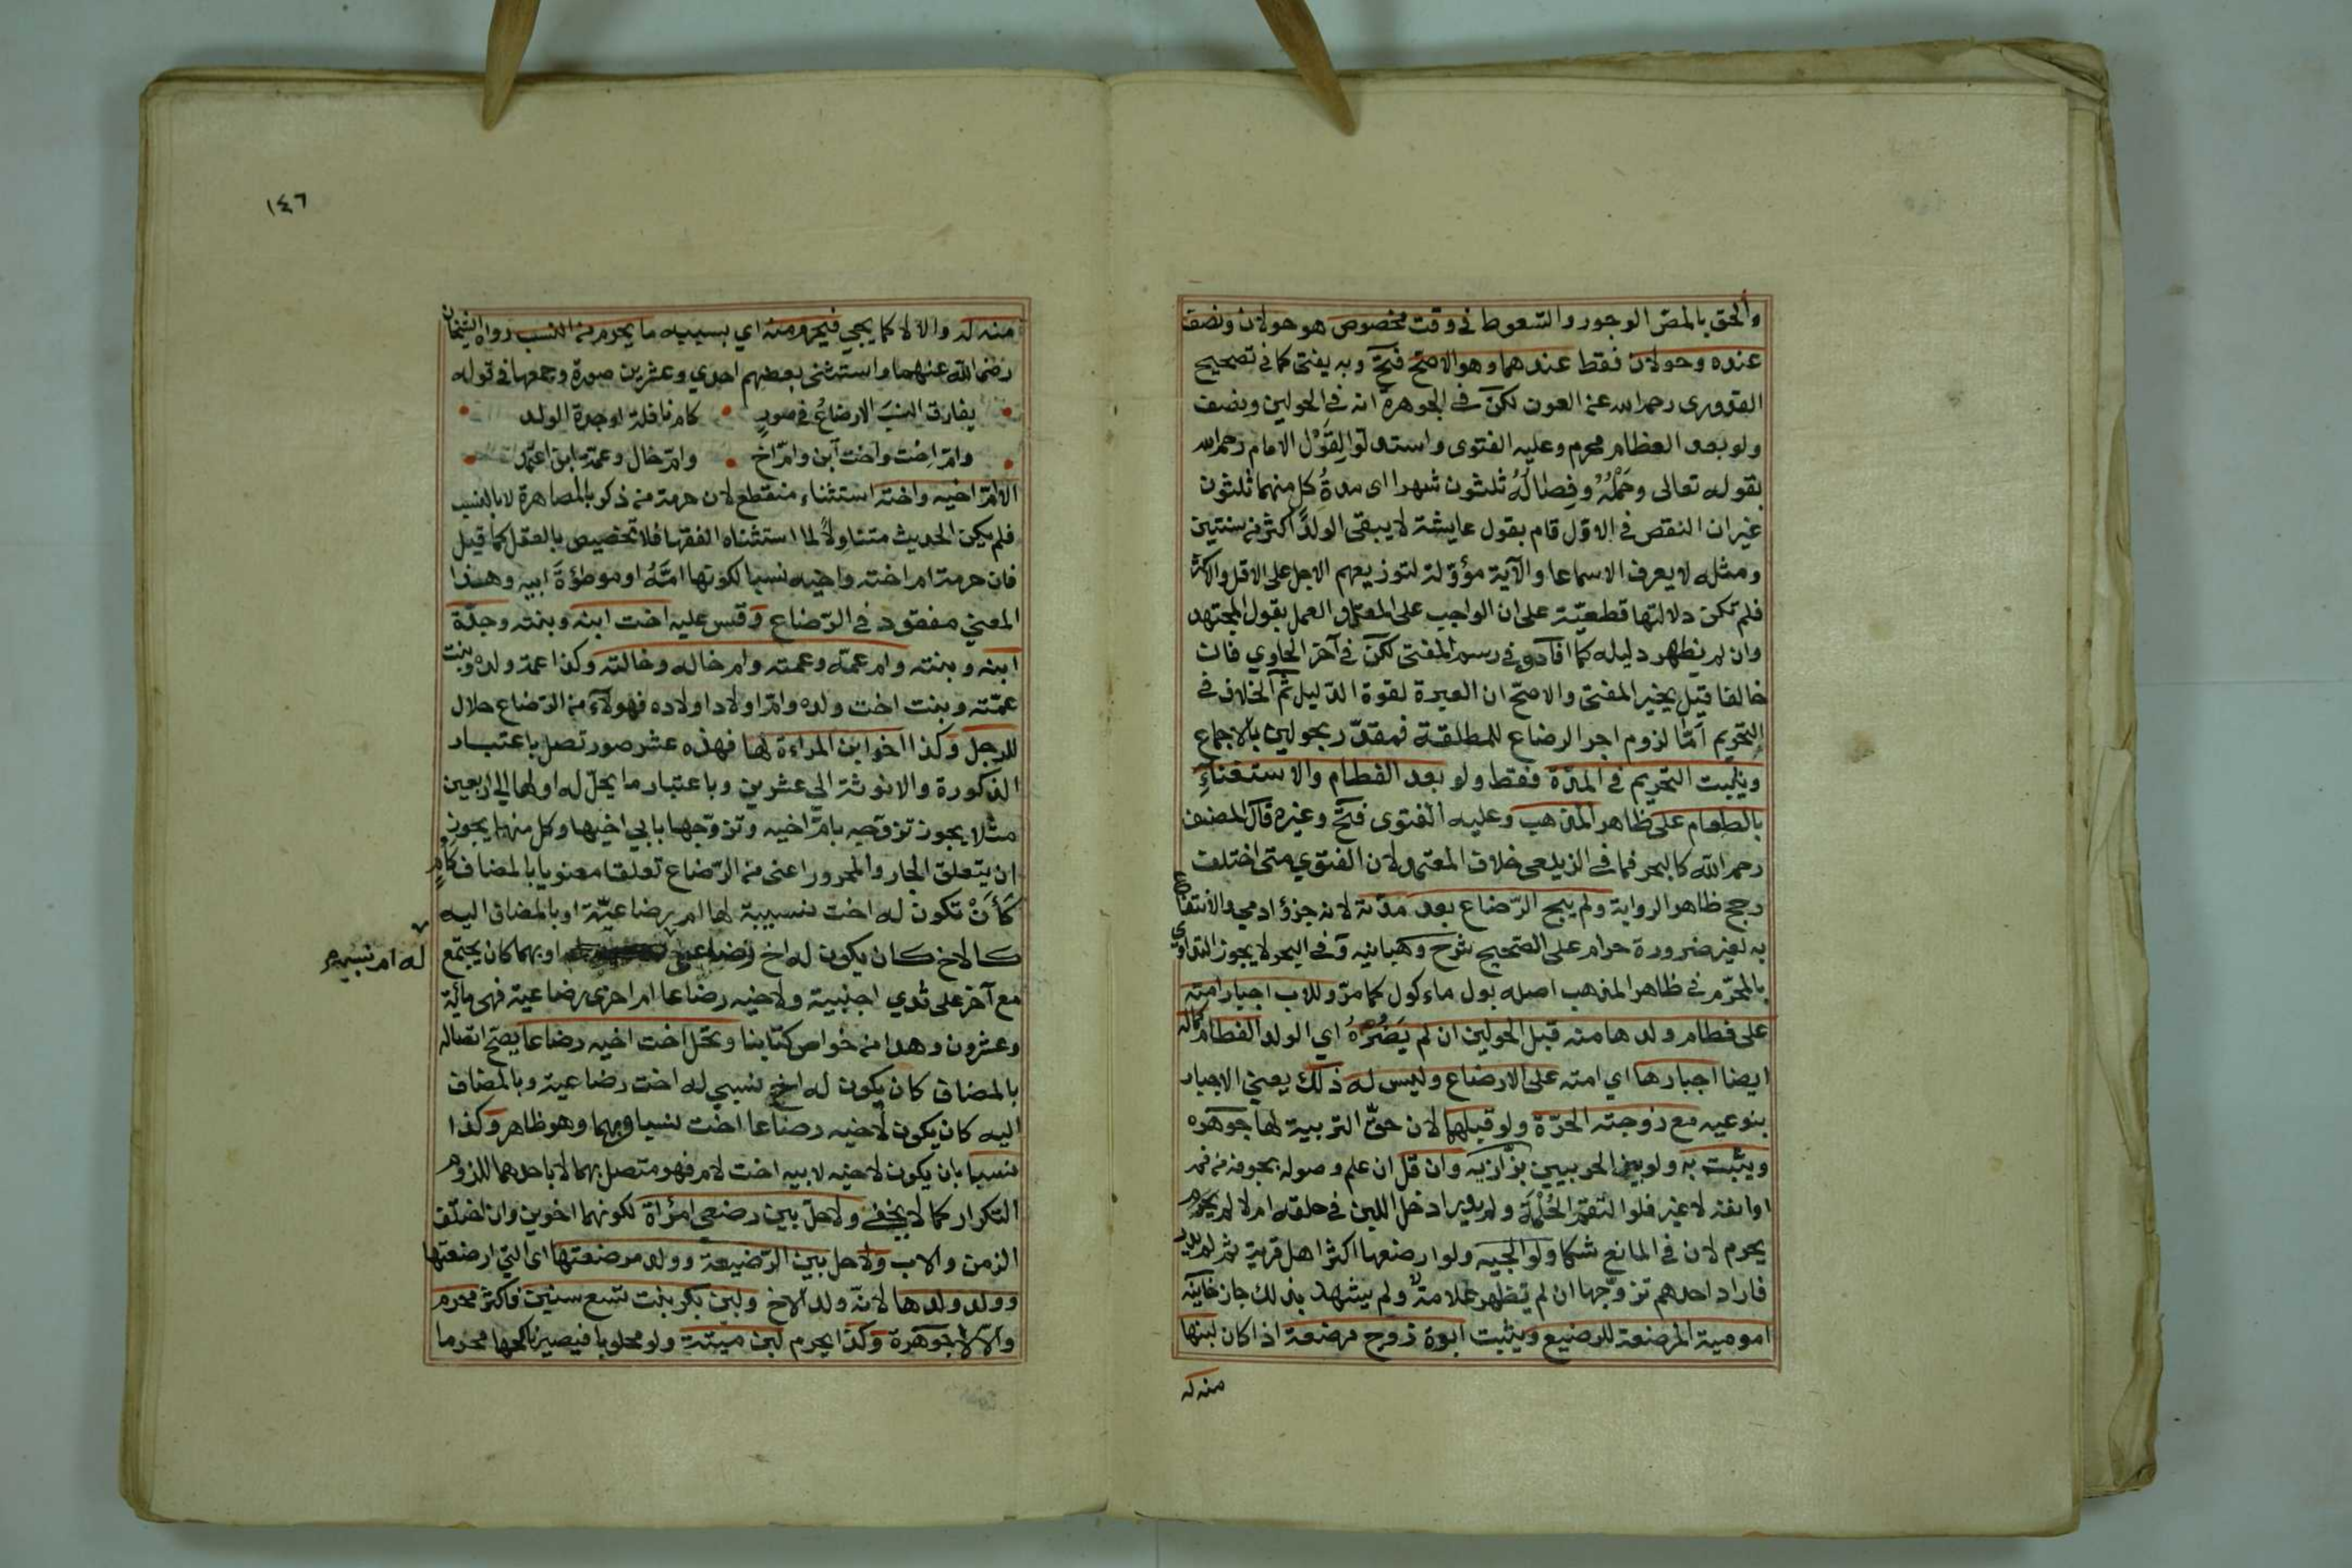 وألحق بالمص الوجور والسعوط في وقت مخصوص هو حولان ونصف
عنده وحولان فقط عندهما وهو الاصح فتح وبه يفتى كما في تصحيح
القدوري رحمه الله عن العون لكن في الجوهرة انه في الحولين ونصف
ولو بعد الفطام محرم وعليه الفتوى واستدلوا لقول الامام رحمه الله
بقوله تعالى وحمله وفصاله ثلثون شهرا اى مدة كل منهما ثلثون
غير ان النقص في الاول قام بقول عايشة لا يبقى الولد اكثر من سنتين
ومثله لا يعرف الا سماعا والآية مؤولة لتوزيعهم الاجل على الاقل والاكثر
فلم تكن دلالتها قطعية على ان الواجب على المقلد العمل بقول المجتهد
وان لم يظهر دليله كما افاده في رسم المفتى لكن في آخر الحاوي فان
خالفا قيل يخير المفتى والاصح ان العبرة لقوة الدليل ثم الخلاف في
التحريم أما لزوم اجر الرضاع للمطلقة فمقدر بحولين بالاجماع
ويثبت التحريم في المدة فقط ولو بعد الفطام والاستغناء
بالطعام على ظاهر المذهب وعليه الفتوى فتح وغيره قال المصنف
رحمه الله كالبحر فما في الزيلعى خلاف المعتمد لان الفتوي متى اختلفت
رجح ظاهر الرواية ولم يبح الرضاع بعد مدته لانه جزؤ ادمي والانتفاع
به لغير ضرورة حرام على الصحيح شرح وهبانيه وفي البحر لا يجوز التداوي
بالمحرم في ظاهر المذهب اصله بول ماءكول كما مر وللاب اجبار امته
على فطام ولدها منه قبل الحولين ان لم يضره اي الولد الفطام كما له
ايضا اجبارها اي امته على الارضاع وليس له ذلك يعني الاجبار
بنوعيه مع زوجته الحرة ولو قبلهما لان حق التربية لها جوهره
ويثبت به ولو بين الحربيين بزازيه وان قل ان علم وصوله بجوفه من فمه
او انفه لا غير فلو التقم الحلمة ولم يدر ادخل اللبن في حلقه ام لا لم يحرم
يحرم لان في المانع شكا ولوالجيه ولو ارضعها اكثر اهل قرية ثم لم يدر
فاراد احدهم تزوجها ان لم تظهر علامة ولم يشهد بذلك جاز خانيه
امومية المرضعة للرضيع ويثبت ابوة زوج مرضعة اذا كان لبنها
منه له
١٤٦
منه له والا لا كما يجي فيحرم منه اي بسببه ما يحرم من النسب رواه الشيخان
رضى الله عنهما واستثنى بعضهم احدي وعشرين صورة وجمعها في قوله
يفارق النسب الارضاع في صور كام نافلة او جدة الولد
وام اخت واخت ابن وام اخ وام خال وعمة ابن اعتمد
الا ام اخيه واخته استثناء منقطع لان حرمة من ذكر بالمصاهرة لا بالنسب
فلم يكن الحديث متناولا لما استثناه الفقهاء فلا تخصيص بالعقل كما قيل
فان حرمة ام اخته واخيه نسبا لكونها امه او موطوؤة ابيه وهذا
المعني مفقود في الرضاع وقس عليه اخت ابنه وبنته وجدة
ابنه وبنته وام عمه وعمته وام خاله وخالته وكذا عمة ولده وبنت
عمته وبنت اخت ولده وام اولاد اولاده فهولآء من الرضاع حلال
للرجل وكذا اخو ابن المراءة لها فهذه عشر صور تصل باعتبار
الذكورة والانوثة الي عشرين وباعتبار ما يحل له او لها الي اربعين
مثلا يجوز تزوجه بام اخيه وتزوجها بابي اخيها وكل منهما يجوز
ان يتعلق الجار والمجرور اعنى من الرضاع تعلقا معنويا بالمضاف كام
كأن تكون له اخت نسبية لها ام رضاعية او بالمضاف اليه
كالاخ كان يكون له اخ رضاعي او بهما كان يجتمع
له ام نسبية
مع آخر على ثدي اجنبية ولاخيه رضاعا ام اخرى رضاعية فهى مأئة
وعشرون وهذا من خواص كتابنا وتحل اخت اخيه رضاعا يصح اتصاله
بالمضاف كان يكون له اخ نسبي له اخت رضاعية وبالمضاف
اليه كان يكون لاخيه رضاعا اخت نسبا وبهما وهو ظاهر وكذا
نسبا بان يكون لاخيه لابيه اخت لام فهو متصل بهما لا باحدهما للزوم
التكرار كما لا يخفى ولا حل بين رضيعي امرأة لكونهما اخوين وان اختلف
الزمن والاب ولا حل بين الرضيعة وولد مرضعتها اى التي ارضعتها
وولد ولدها لانه ولد الاخ ولبن بكر بنت تسع سنين فاكثر محرم
والا لا جوهرة وكذا يحرم لبن ميتة ولو محلوبا فيصير ناكحها محرما